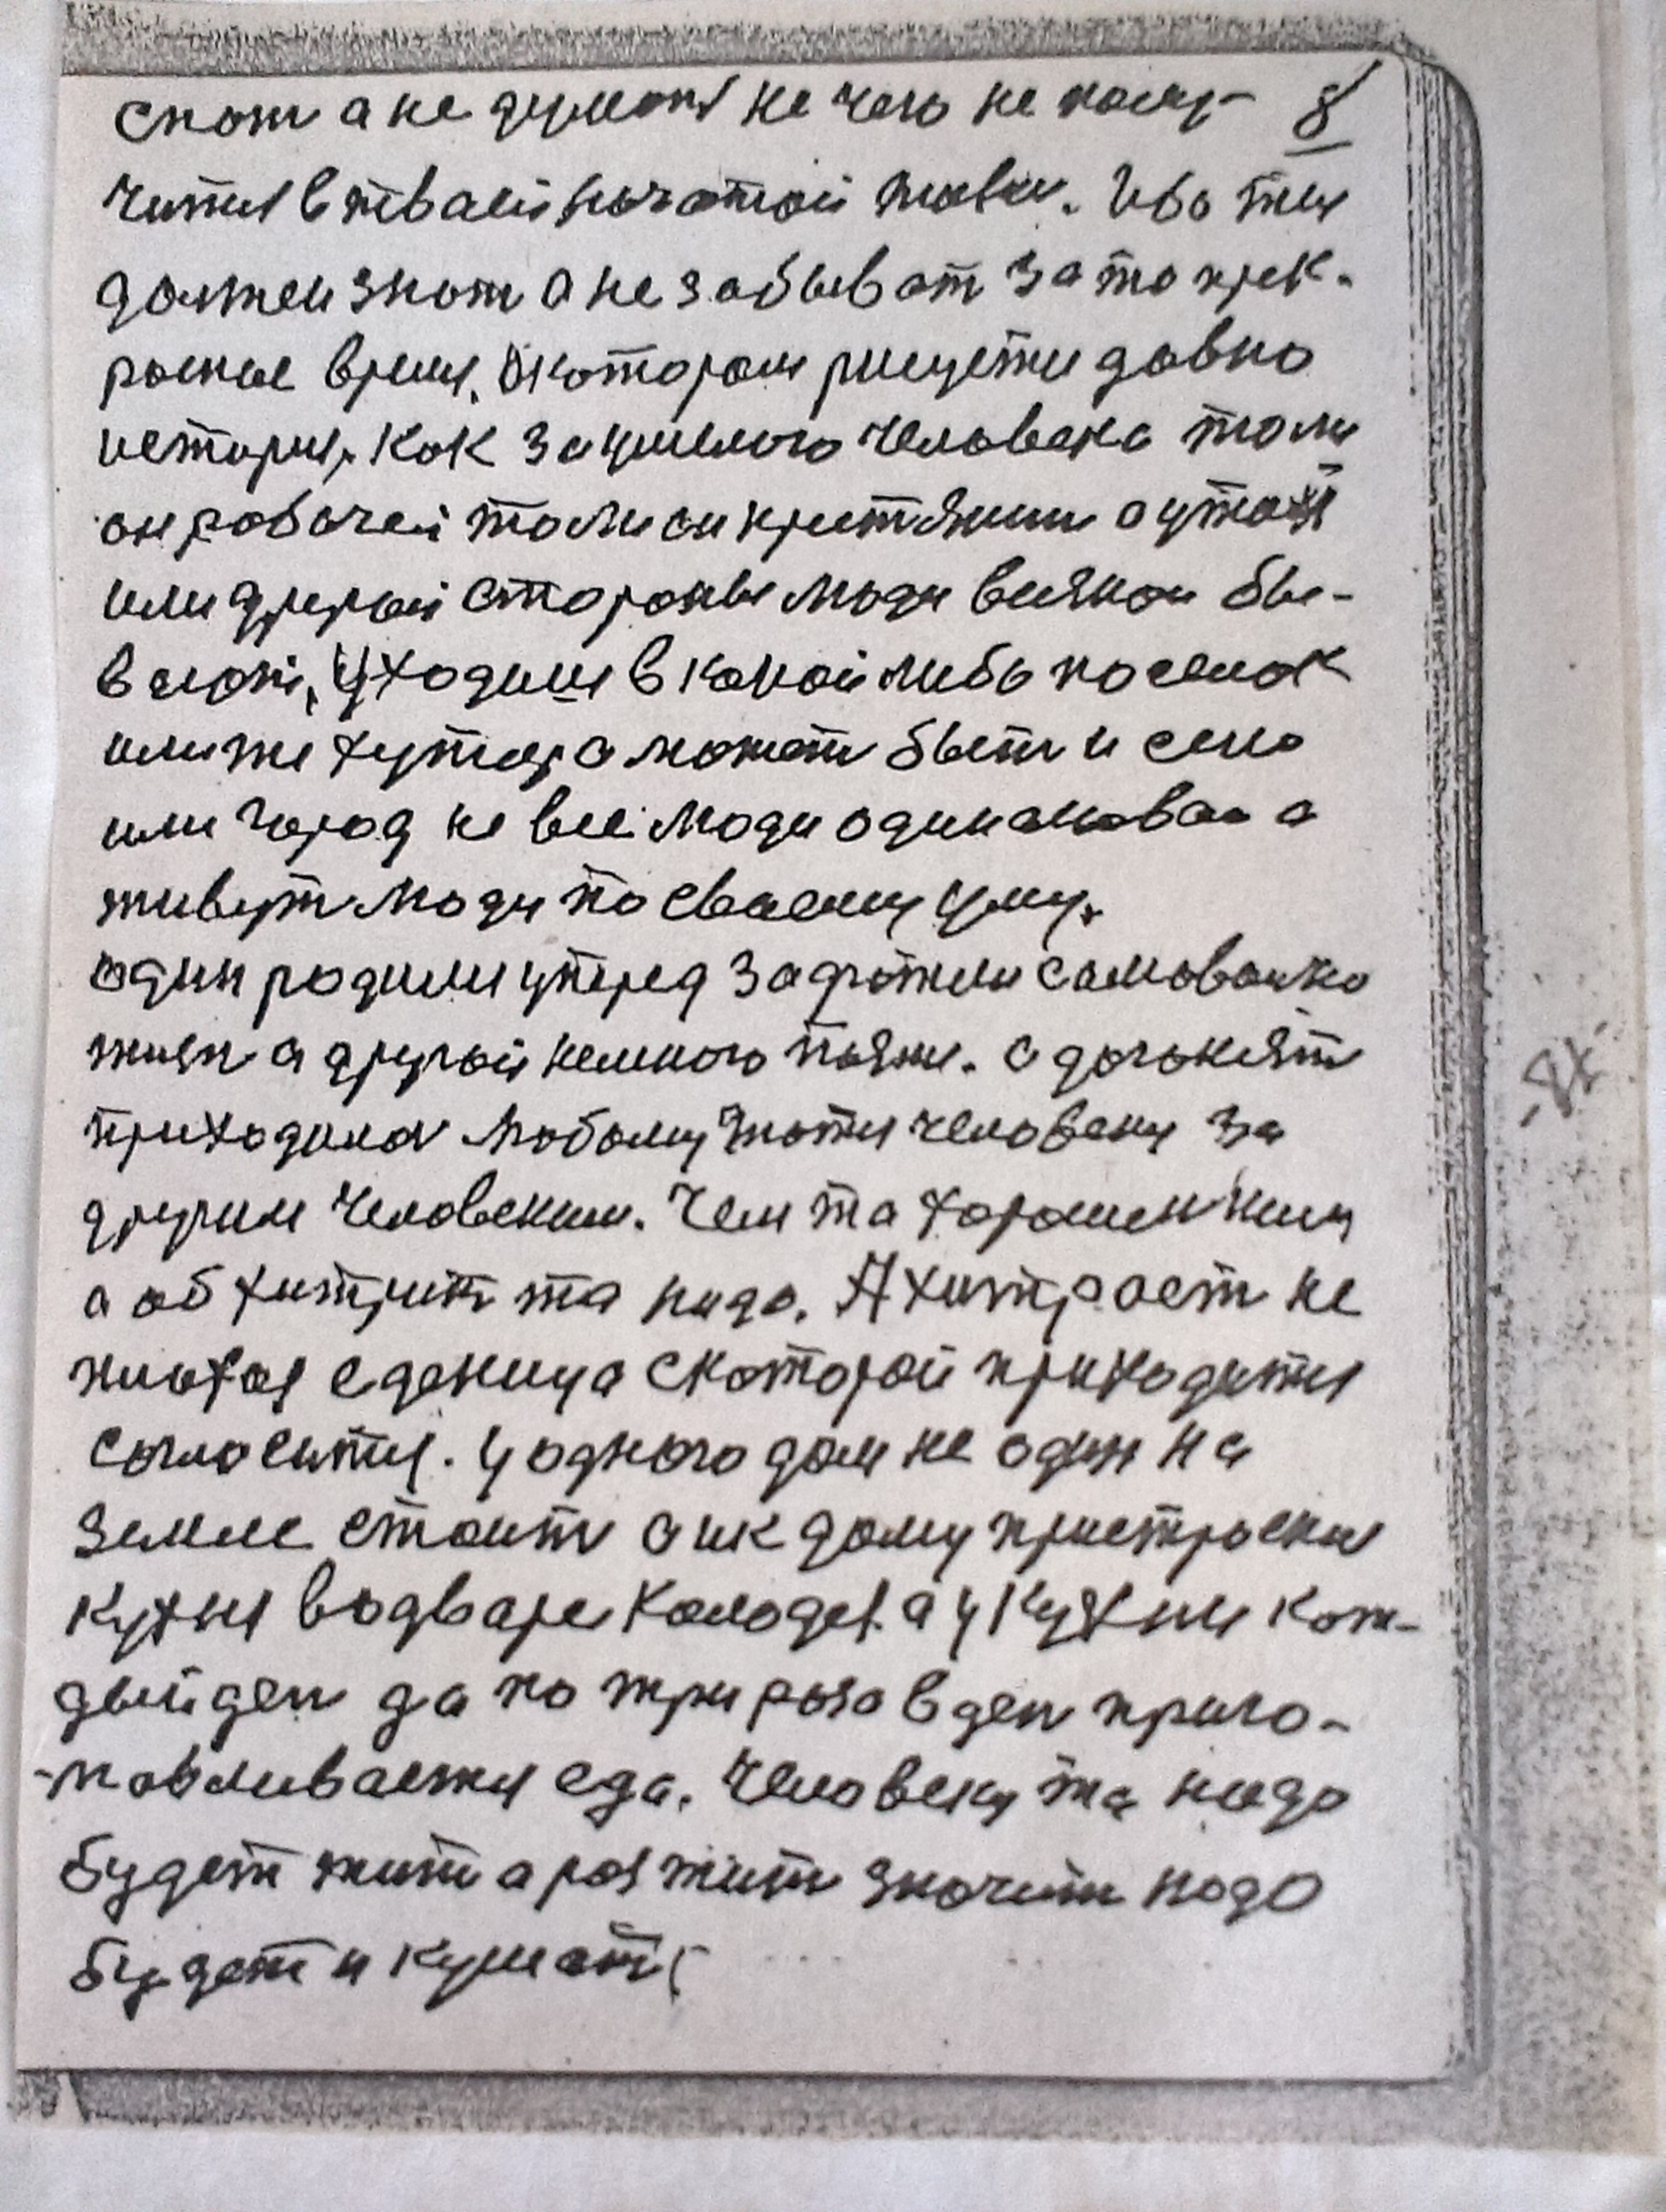 спат а не думат не чего не палу- 8
читця в твваей начатой жизни. Ибо ты
должен знат а не забыват за то прек-
расное время, о котором рисуетця давно
история, как за умелого человека толи
он рабочей толи он крестянин а у той
или другой стораны люди всякои бы-
вают, Уходиш в какой либо поселок
или же хутор, а может быт и село
или город не все люди одинакован а
живут люди по сваему уму.
один родился уперед задрожели самовончко
жизн а другой немного позже. а догонят
приходица любому знатя человеку за
другим человеким. Чем та хорошем нему
а об хитрит та надо. А хитраст не
плохая еденица с каторай приходитця
согласитця. у одного дом не один на
земле стоит а и к дому пристроена
кухня во дваре колодез. а у кухни каж-
дый ден да по три раза в ден приго-
-тавливаетця еда. Человеку та надо
будет жит а раз жит значит надо
будет и кушат,
-8х-